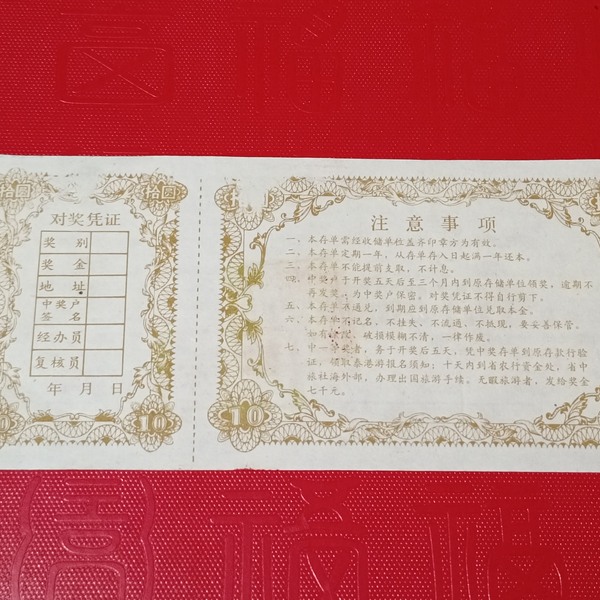 拾圆
拾圆
对奖凭证
奖 别
奖 金
地 址
中奖户
签 名
经办员
复核员
年 月 日
10
注意事项
一、本存单需经收储单位盖齐印章方为有效。
二、本存单定期一年，从存单存入日起满一年还本。
三、本存单不能提前支取，不计息。
四、中奖户于开奖五天后至三个月内到原存储单位领奖，逾期不
再发奖，为中奖户保密。对奖凭证不得自行剪下。
五、本存单不通兑，到期应到原存储单位兑取本金。
六、本存单不记名，不挂失，不流通，不抵现，要妥善保管。
如有 ，破损模糊不清，一律作废。
七、中一等奖者，务于开奖后五天，凭中奖存单到原存款行验
证，领取泰港游报名须知；十天内到省农行资金处，省中
旅社海外部，办理出国旅游手续。无暇旅游者，发给奖金
七千元。
10